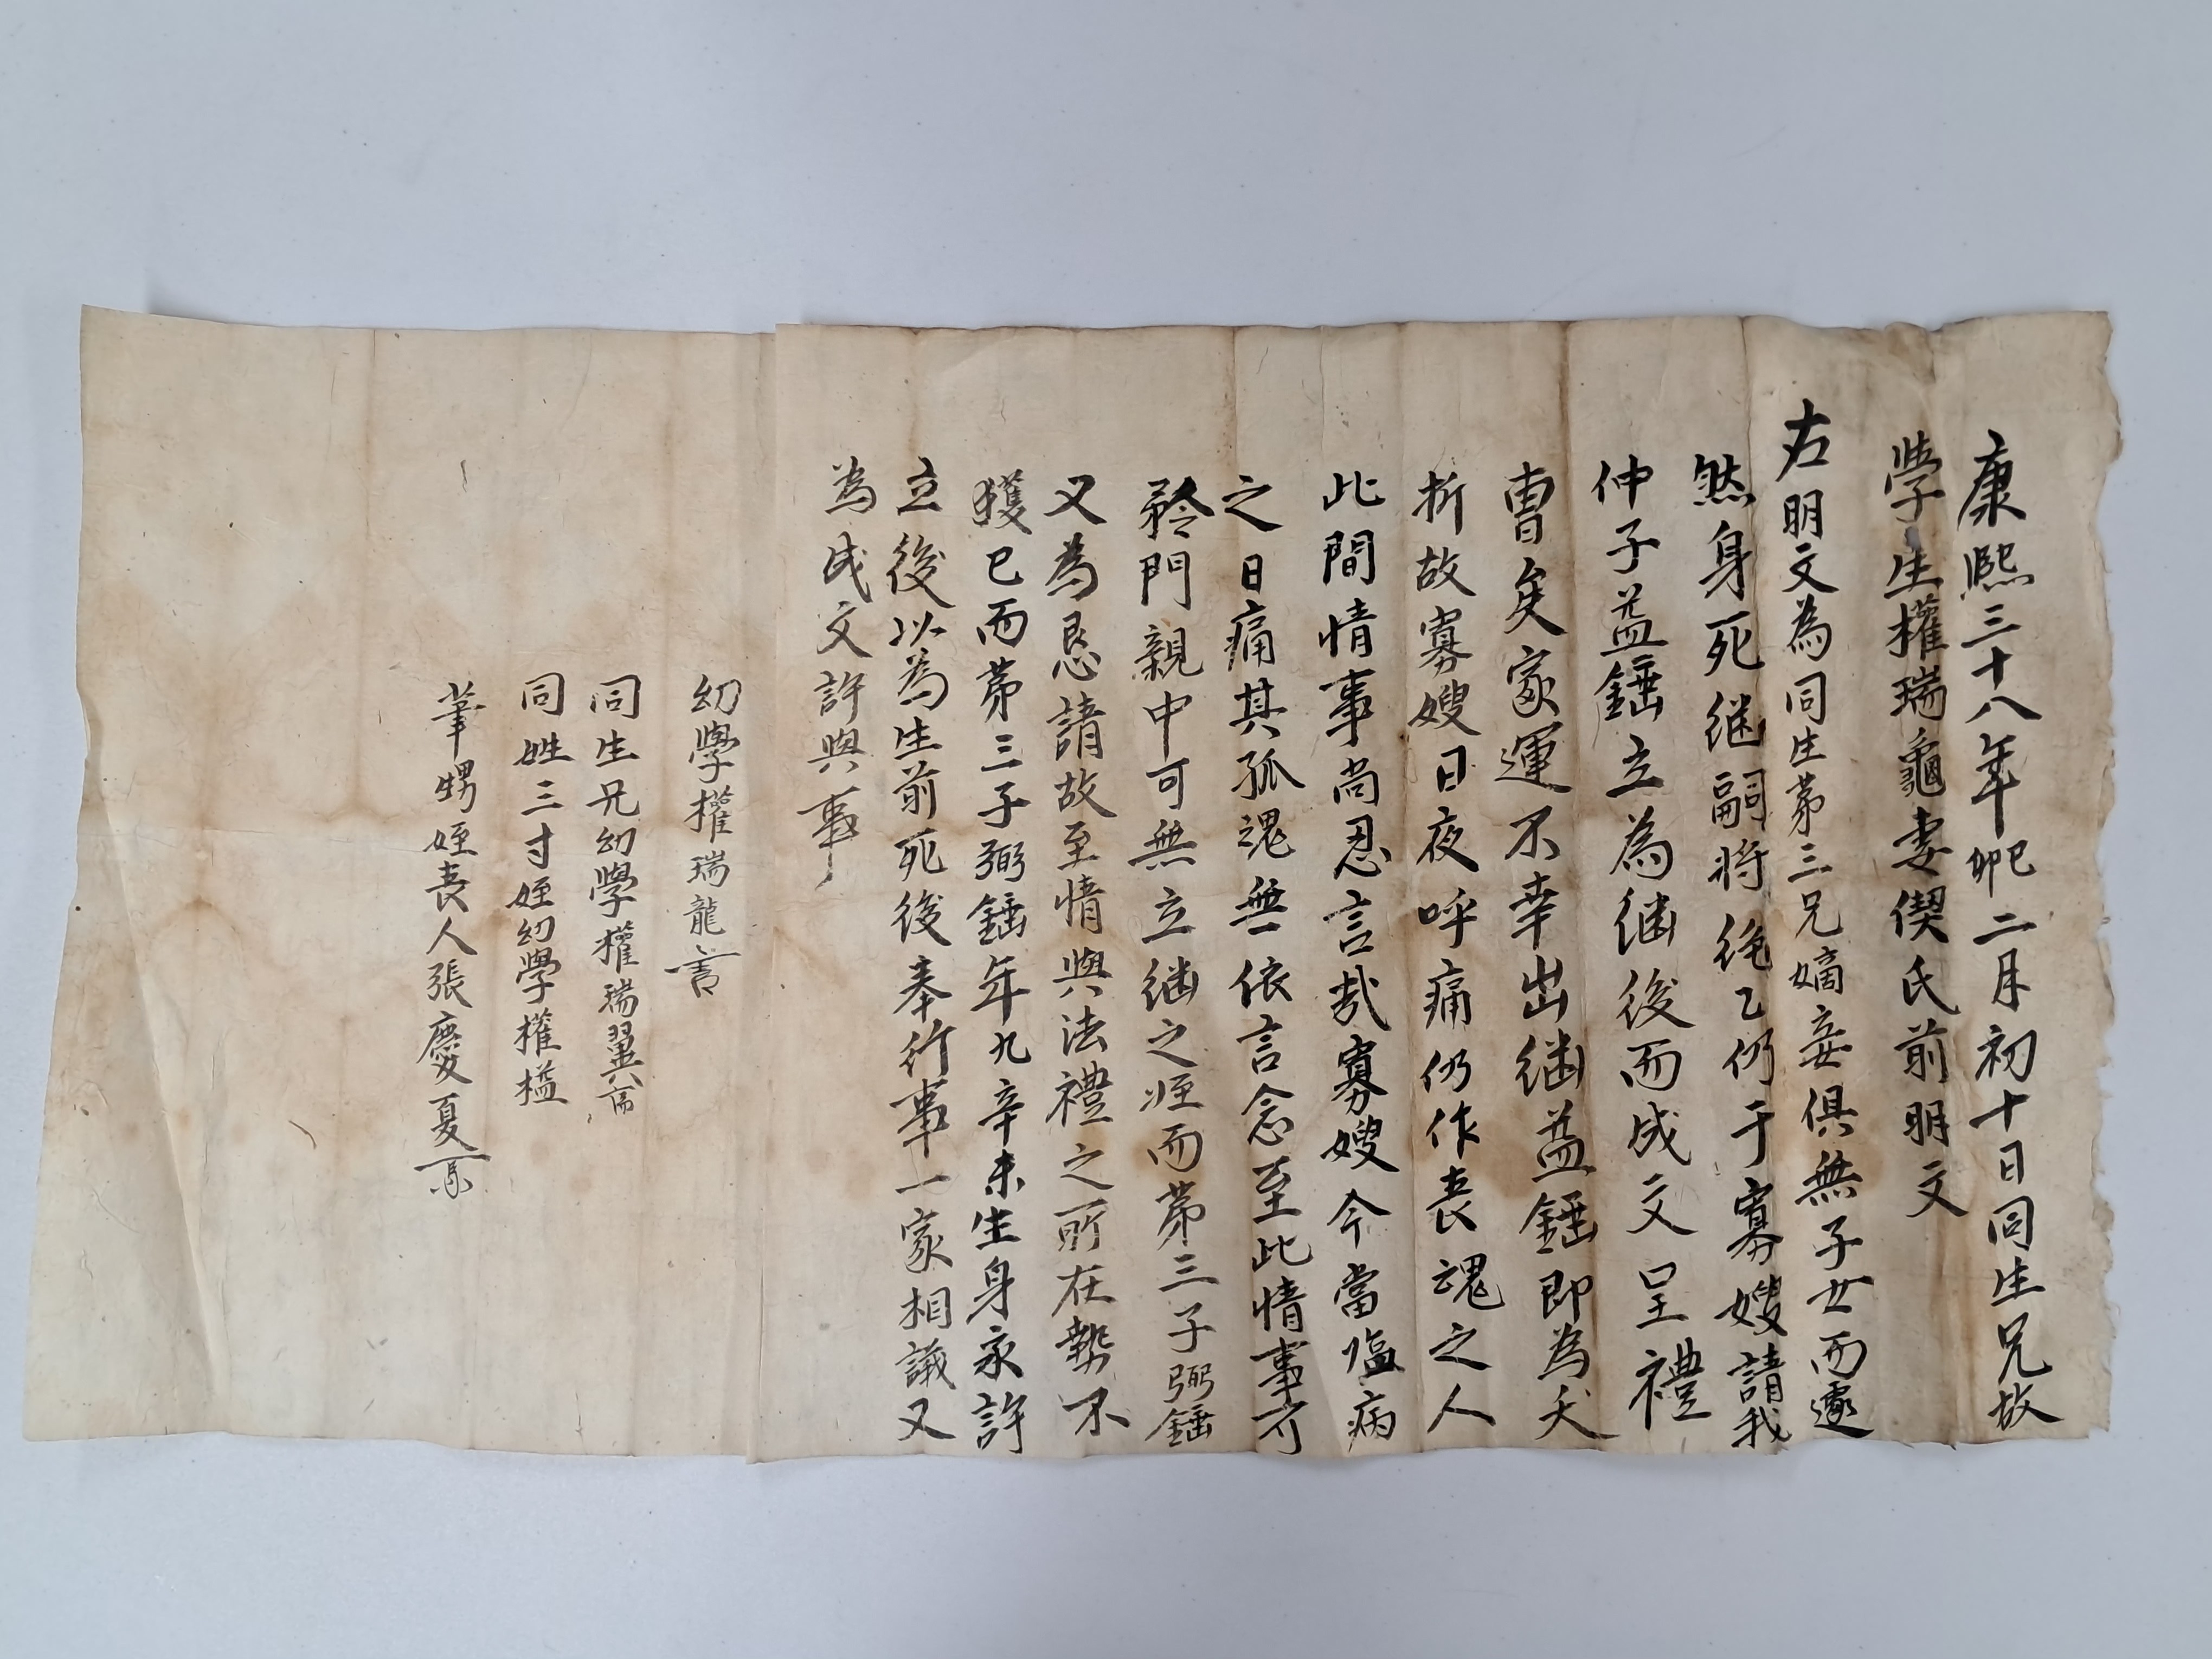 康熙三十八年己卯二月初十日同生兄故
學生權瑞龜妻偰氏前明文
右明文為同生第三兄嫡妾俱無子女而遽
然身死継嗣將絶乙仍于寡嫂請我
仲子益錘立為継後而成文呈禮
曺矣家運不幸出継益錘即為夭
折故寡嫂日夜呼痛仍作喪魂之人
此間情事尚忍言哉寡嫂今當塩病
之日痛其孤魂無依言念至此情事可
矜門親中可無立継之姪而第三子弼錘
又為恳請故至情與法禮之所在勢不
獲已而第三子弼錘年九辛未生身永許
立後以為生前死後奉行事一家相議又
為成文許與事
幼學權瑞龍
同生兄幼學權瑞翼
同姓三寸姪幼學權𣖔
筆甥姪喪人張慶夏